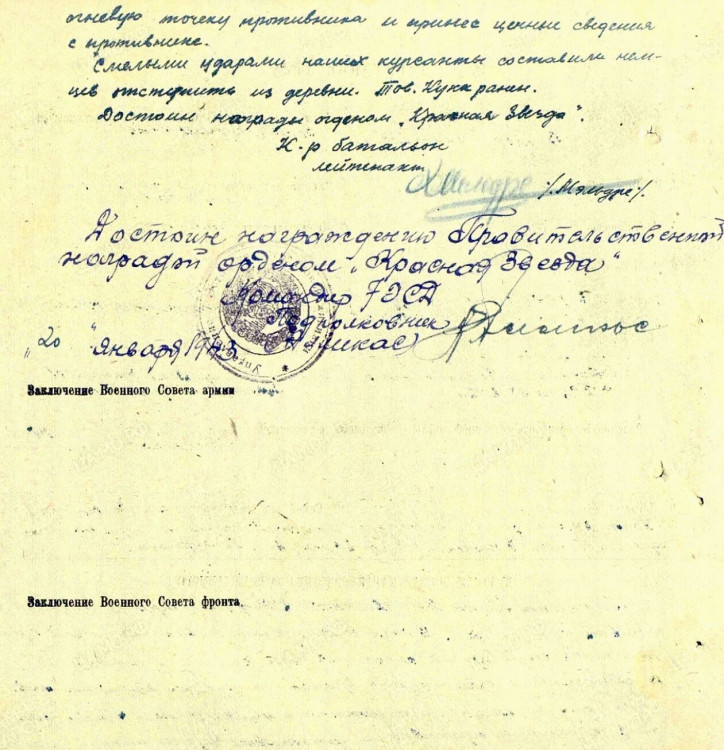 огневую точку противника и принес ценные сведения
с противнике.
Смелыми ударами наших курсанты составили нем-
цев отстерпить из деревни. Тов. Кукк ранен.
Достоин награды орденом „Красная Звезда".
К-р батальон
лейтенант
/Мэльдре/.
Достоин награждению Правительственный
наградой орденом „Красная Звезда"
Командир 7 ЭСД
Подполковник
„20" Января 1943
Заключение Военного Совета армии
Заключение Военного Совета фронта